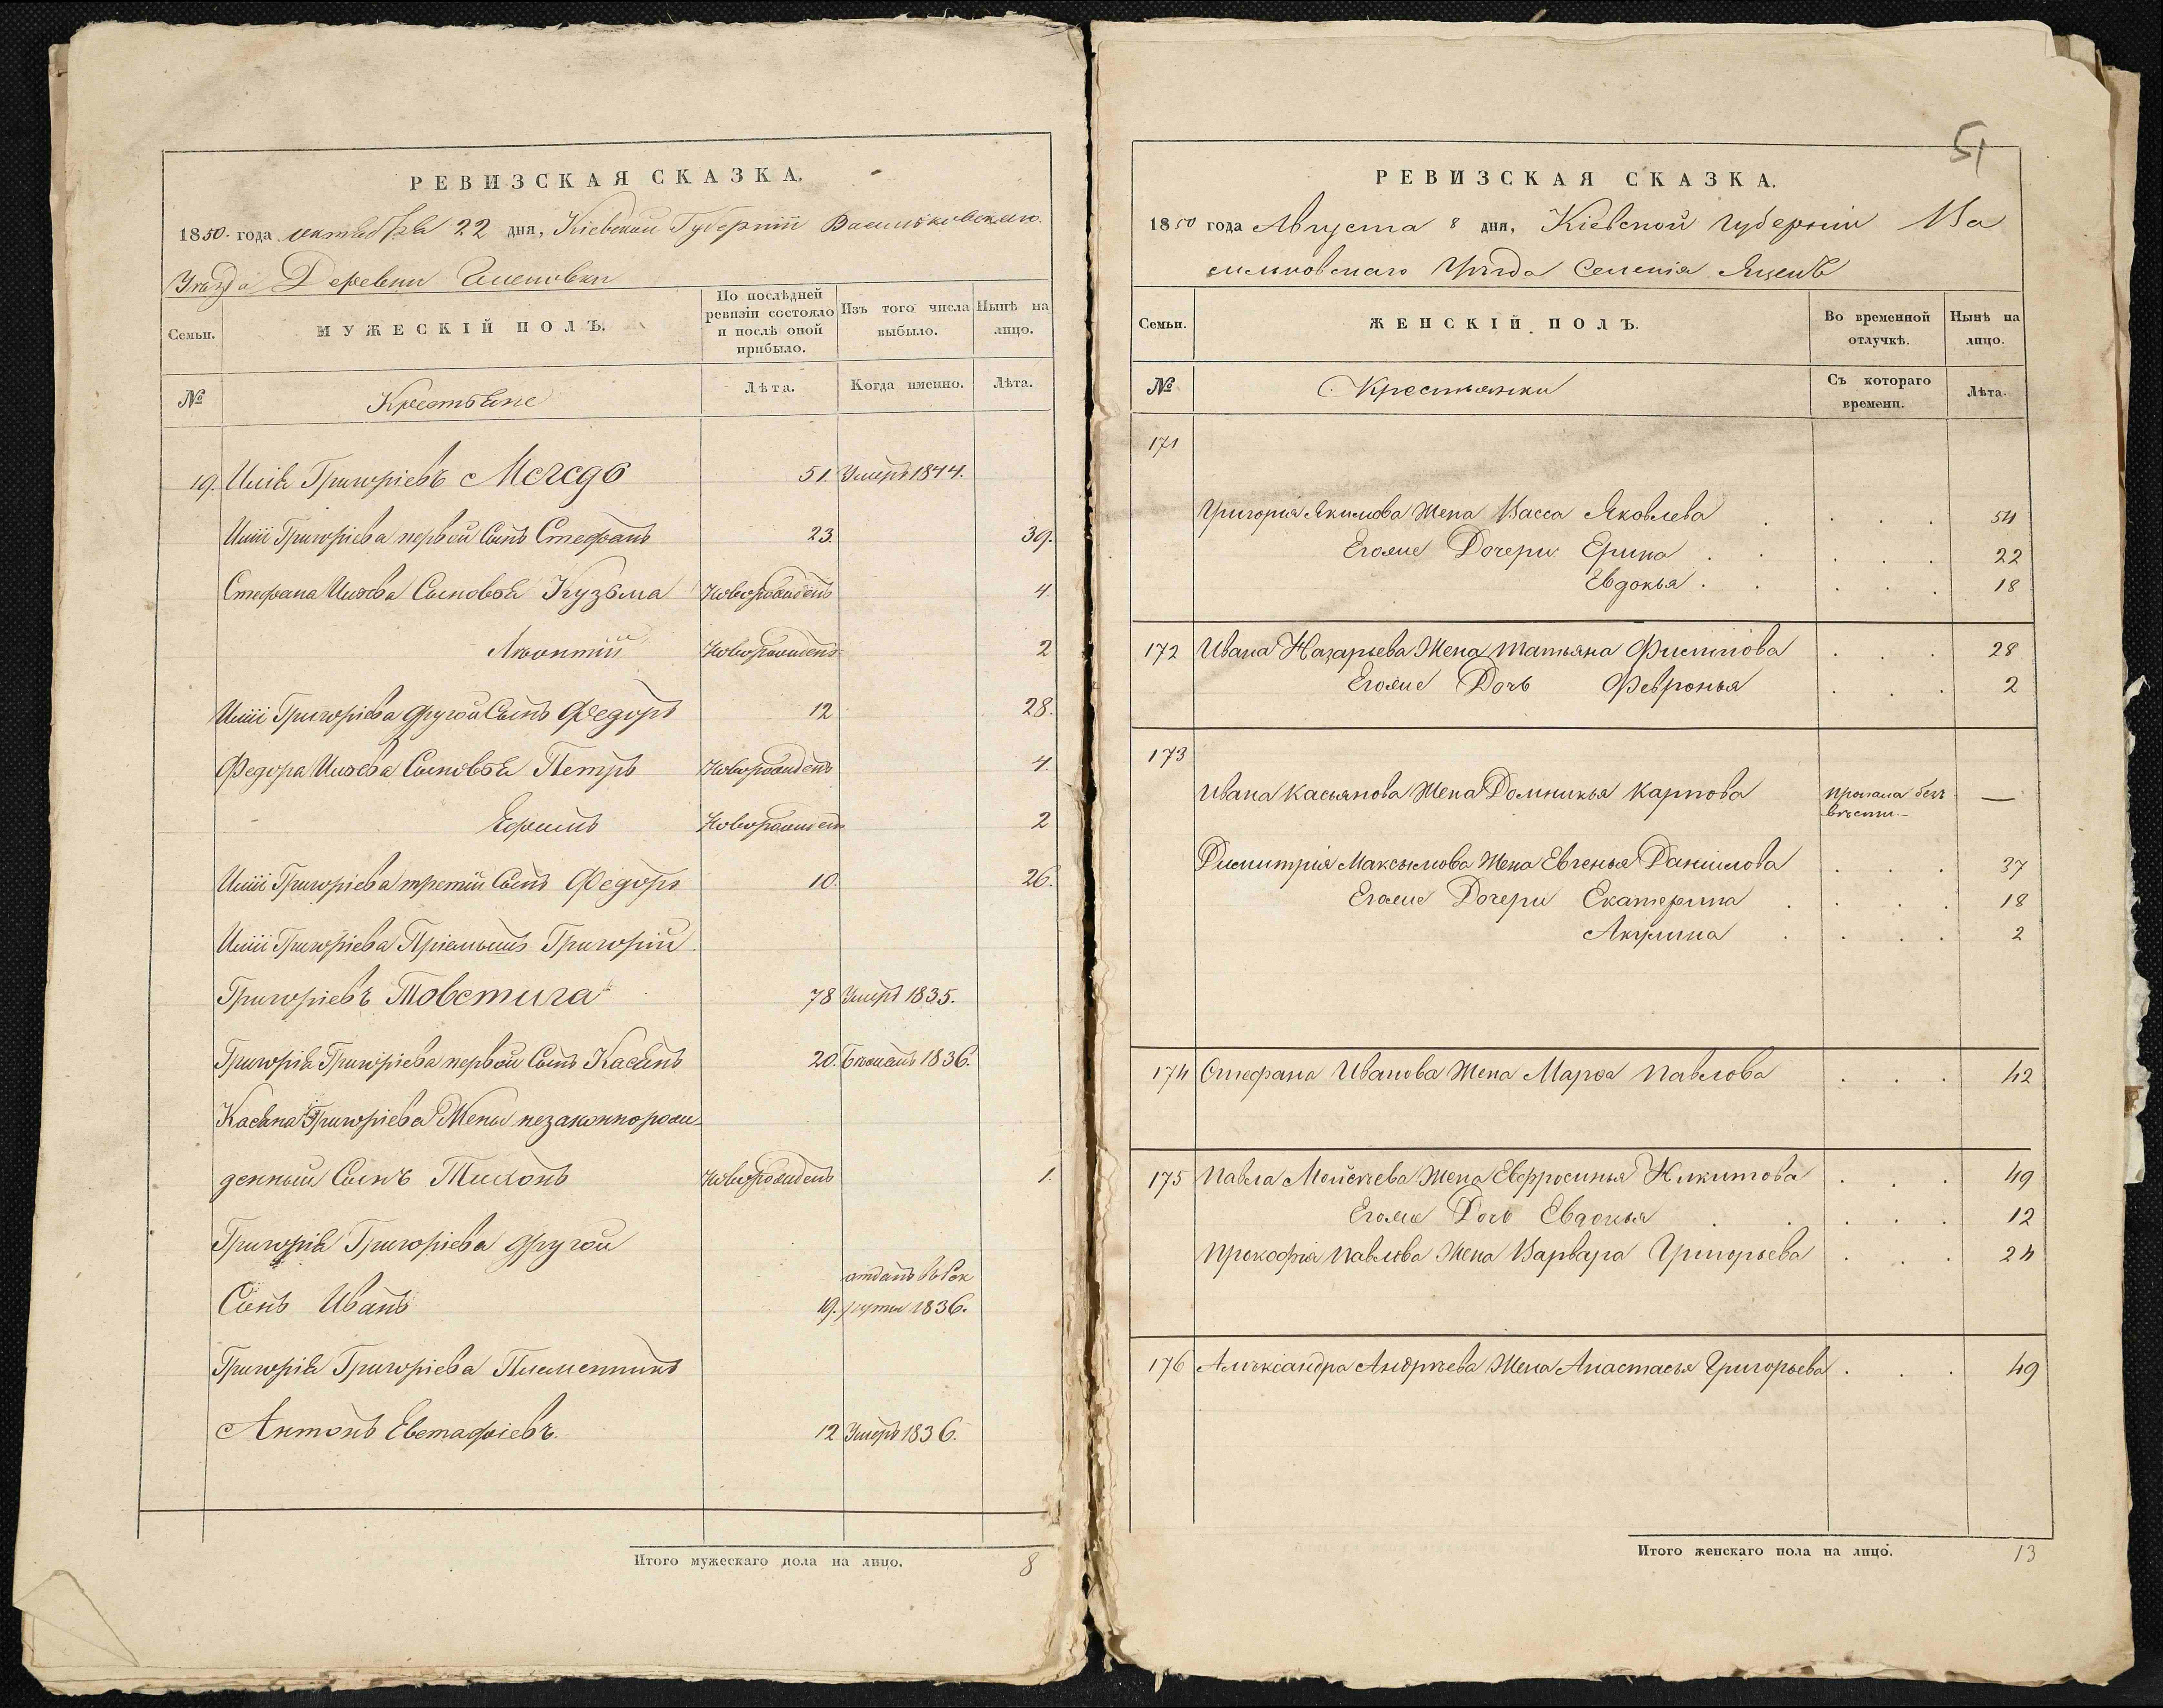 РЕВИЗСКАЯ СКАЗКА.
1850. года октября 22 дня, Кіевской Губерніи Васильковскаго
Уѣзда Деревни
Семьи.
МУЖЕСКІЙ ПОЛЪ.
По послѣдней ревизіи состояло и послѣ оной прибыло.
Изъ того числа выбыло.
Нынѣ на лицо.
№
Крестьяне
Лѣта.
Когда именно.
Лѣта.
19. Илія Григоріевъ 51. Умеръ 1844.
Иліи Григоріева первой Сынъ Стефанъ 23. 39.
Стефана Иліева Сыновья Кузьма Новорожденъ 4.
Леонтій Новорожденъ 2
Иліи Григоріева другой Сынъ Федоръ 12 28.
Федора Иліева Сыновья Петръ Новорожденъ 4.
Ефимъ Новорожденъ 2
Иліи Григоріева третій Сынъ Федоръ 10. 26.
Иліи Григоріева Пріемышъ Григорій
Григоріевъ Товстига 78 Умеръ 1835.
Григорія Григоріева первой Сынъ Касянъ 20. Бѣжалъ 1836.
Касяна Григоріева Жены незаконнорож-
денный Сынъ Тихонъ Новорожденъ 1.
Григорія Григоріева другой
отданъ въ Рек
Сынъ Иванъ 19. руты 1836.
Григорія Григоріева Племенникъ
Антонъ Евстафіевъ. 12 Умеръ 1836.
Итого мужескаго пола на лицо. 8
51
РЕВИЗСКАЯ СКАЗКА.
1850 года Августа 8 дня, Кіевской Губерніи Ва
сильковскаго Уѣзда Селенія Яцекъ
Семьи.
ЖЕНСКІЙ ПОЛЪ.
Во временной отлучкѣ.
Нынѣ на лицо.
№
Крестьянки
Съ котораго времени.
Лѣта.
171
Григорія Якимова Жена Васса Яковлева 54
Егоже Дочери Ерина 22
Евдокья 18
172 Ивана Назарьева Жена Татьяна Филипова 28
Егоже Дочь Февронья 2
173
Ивана Касьянова Жена Домникья Карпова Пропала безъ вѣсти —
Димитрія Максымова Жена Евгенья Данилова 37
Егоже Дочери Екатерина 18
Акулина 2
174 Стефана Иванова Жена Марѳа Павлова 42
175 Павла Мойсѣева Жена Евфросинья Никитова 49
Егоже Дочь Евдокья 12
Прокофія Павлова Жена Варвара Григорьева 24
176 Алѣксандра Андрѣева Жена Анастасья Григорьева 49
Итого женскаго пола на лицо. 13